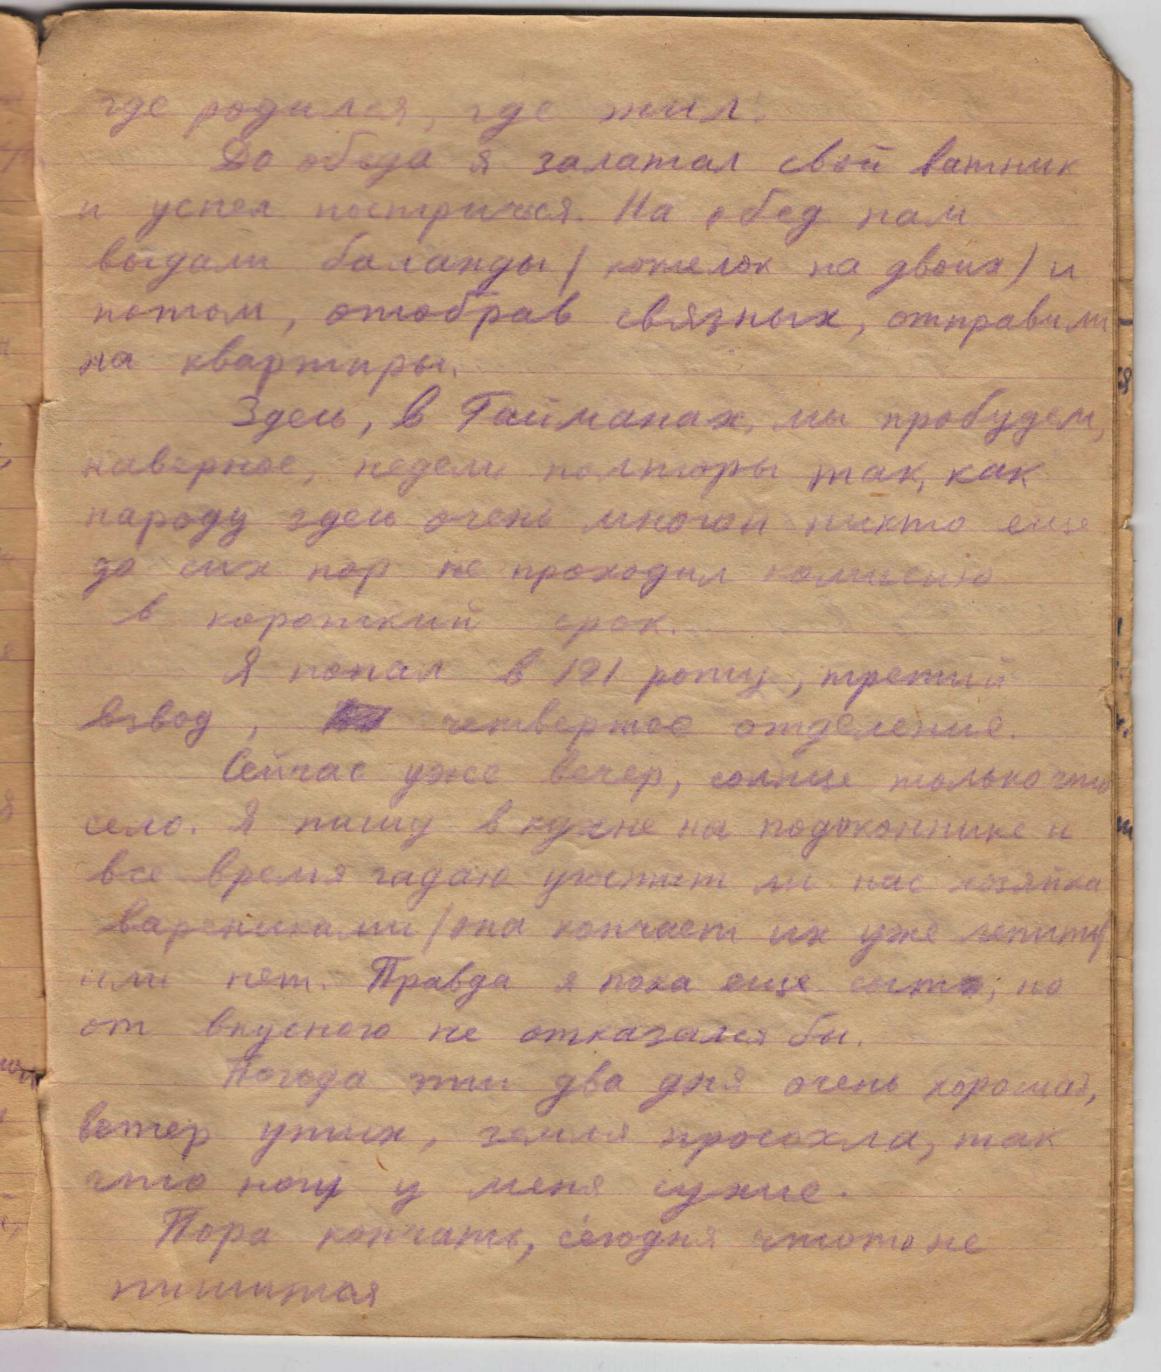 где родился, где жил.
До обеда я залатал свой ватник
и успел постричься. На обед нам
выдали баланды (котелок на двоих) и
потом, отобрав связных, отправили
на квартиры.
Здесь, в Гайманах, мы пробудем,
наверное, недели полторы так, как
народу здесь очень много и никто еще
до сих пор не проходил комисию
в короткий срок.
Я попал в 121 роту, третий
взвод, четвертое отделение.
Сейчас уже вечер, солнце только что
село. Я пишу в кухне на подоконнике и
все время гадаю угостит ли нас хозяйка
варениками (она кончает их уже лепить)
или нет. Правда я пока еще сыт, но
от вкусного не отказался бы.
Погода эти два дня очень хорошая,
ветер утих, земля просохла, так
что ноги у меня сухие.
Пора кончать, сегодня чтото не
пишится